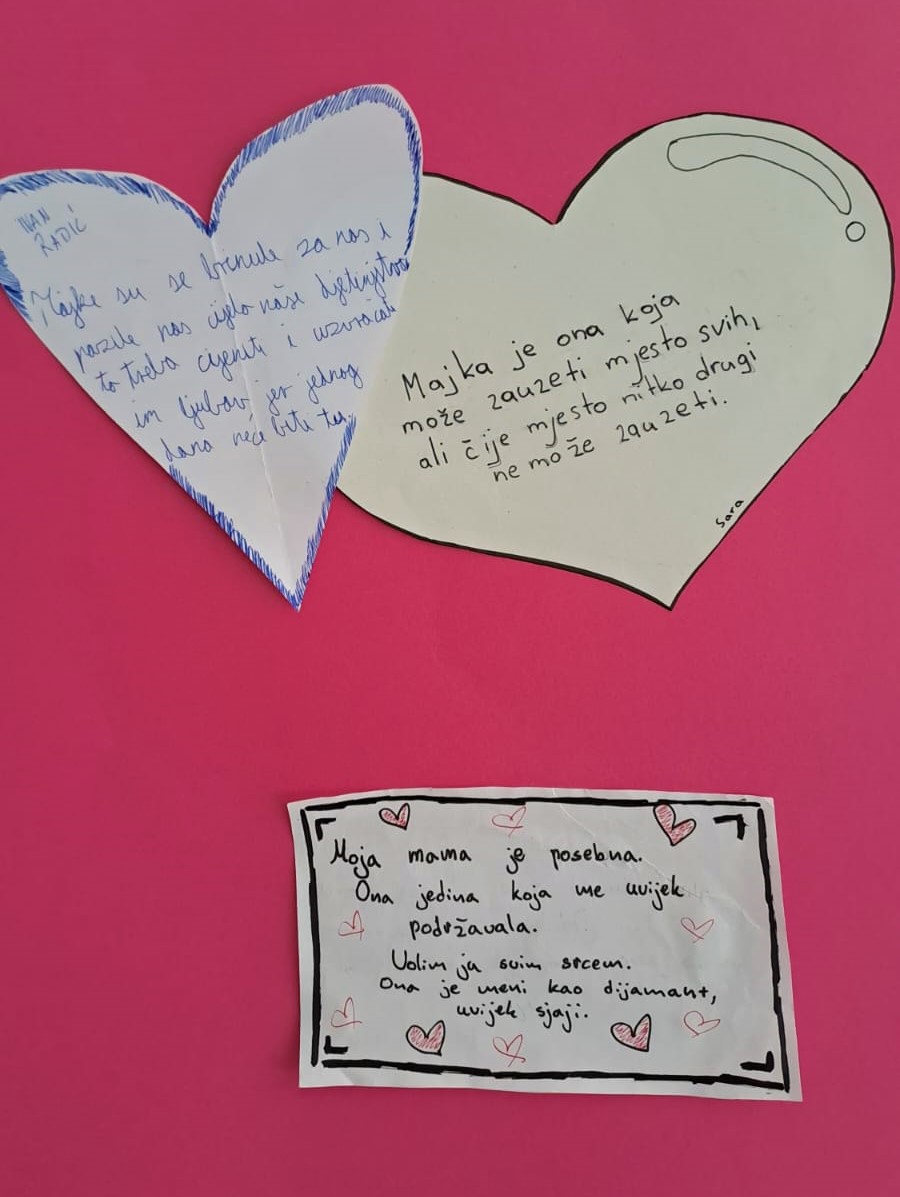 IVAN
RADIĆ
Majke su se brinule za nas i
pazile nas cijelo naše djetinjstvo
to treba cijeniti i uzvraćati
im ljubav jer jednog
dana neće biti tu.
Majka je ona koja
može zauzeti mjesto svih,
ali čije mjesto nitko drugi
ne može zauzeti.
Sara
Moja mama je posebna.
Ona jedina koja me uvijek
podržavala.
Volim ja svim srcem.
Ona je meni kao dijamant,
uvijek sjaji.